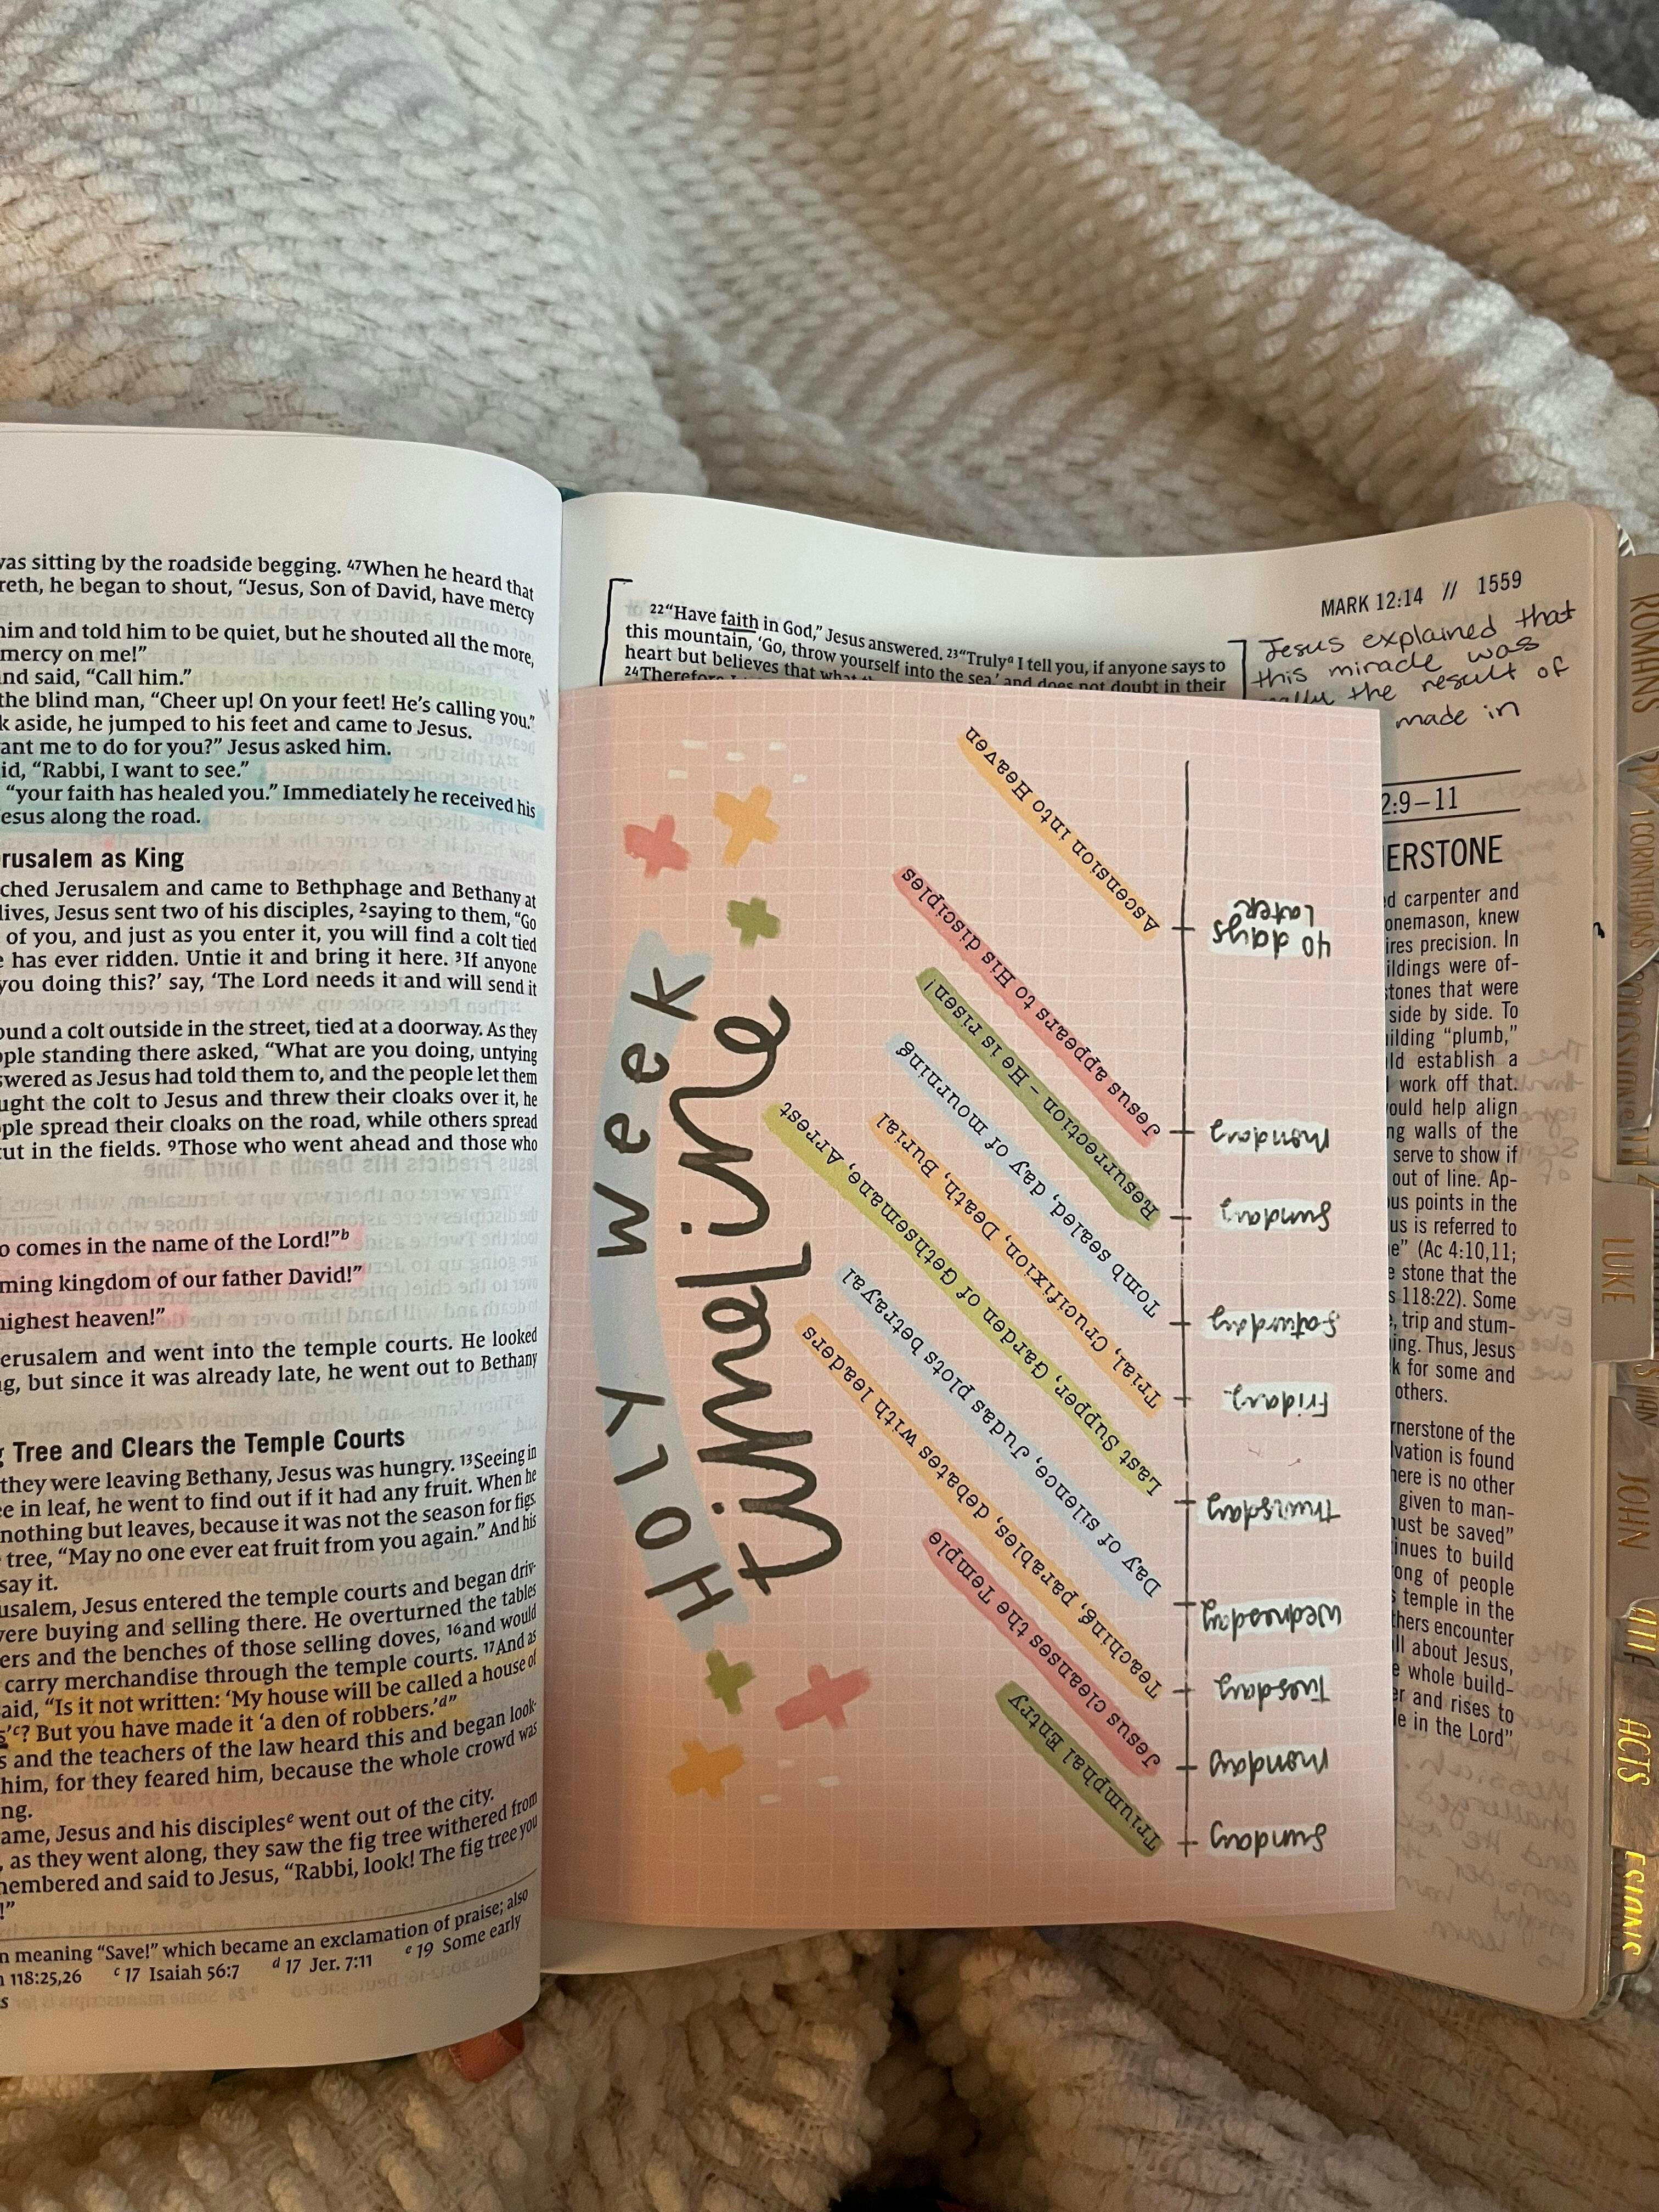 was sitting by the roadside begging. 47When he heard that
reth, he began to shout, “Jesus, Son of David, have mercy
him and told him to be quiet, but he shouted all the more,
mercy on me!”
and said, “Call him.”
the blind man, “Cheer up! On your feet! He’s calling you.”
k aside, he jumped to his feet and came to Jesus.
ant me to do for you?” Jesus asked him.
id, “Rabbi, I want to see.”
“your faith has healed you.” Immediately he received his
esus along the road.
erusalem as King
ched Jerusalem and came to Bethphage and Bethany at
lives, Jesus sent two of his disciples, 2saying to them, “Go
of you, and just as you enter it, you will find a colt tied
e has ever ridden. Untie it and bring it here. 3If anyone
you doing this?’ say, ‘The Lord needs it and will send it
ound a colt outside in the street, tied at a doorway. As they
ople standing there asked, “What are you doing, untying
swered as Jesus had told them to, and the people let them
ught the colt to Jesus and threw their cloaks over it, he
ple spread their cloaks on the road, while others spread
cut in the fields. 9Those who went ahead and those who
o comes in the name of the Lord!”b
ming kingdom of our father David!”
highest heaven!”
erusalem and went into the temple courts. He looked
ng, but since it was already late, he went out to Bethany
g Tree and Clears the Temple Courts
they were leaving Bethany, Jesus was hungry. 13Seeing in
ee in leaf, he went to find out if it had any fruit. When he
nothing but leaves, because it was not the season for figs.
tree, “May no one ever eat fruit from you again.” And his
say it.
usalem, Jesus entered the temple courts and began driv-
were buying and selling there. He overturned the tables
ers and the benches of those selling doves, 16and would
carry merchandise through the temple courts. 17And as
said, “Is it not written: ‘My house will be called a house of
s’c? But you have made it ‘a den of robbers.’d”
s and the teachers of the law heard this and began look-
him, for they feared him, because the whole crowd was
ng.
ame, Jesus and his disciplese went out of the city.
, as they went along, they saw the fig tree withered from
membered and said to Jesus, “Rabbi, look! The fig tree you
!”
n meaning “Save!” which became an exclamation of praise; also
118:25,26 c 17 Isaiah 56:7 d 17 Jer. 7:11 e 19 Some early
s
MARK 12:14 // 1559
22“Have faith in God,” Jesus answered. 23“Trulya I tell you, if anyone says to
this mountain, ‘Go, throw yourself into the sea,’ and does not doubt in their
heart but believes that what
24Therefore
Jesus explained that
this miracle was
the result of
made in
HOLY WEEK
timeline
Sunday
Triumphal Entry
Monday
Jesus cleanses the Temple
Tuesday
Teaching, parables, debates with leaders
Wednesday
Day of silence, Judas plots betrayal
Thursday
Last Supper, Garden of Gethsemane, Arrest
Friday
Trial, Crucifixion, Death, Burial
Saturday
Tomb sealed, day of mourning
Sunday
Resurrection - He is risen!
Monday
Jesus appears to His disciples
40 days
Later
Ascension into Heaven
2:9–11
ERSTONE
d carpenter and
onemason, knew
ires precision. In
ildings were of-
stones that were
side by side. To
ilding “plumb,”
ld establish a
work off that.
ould help align
ng walls of the
serve to show if
out of line. Ap-
us points in the
us is referred to
e” (Ac 4:10,11;
e stone that the
s 118:22). Some
, trip and stum-
ing. Thus, Jesus
k for some and
others.
rnerstone of the
lvation is found
here is no other
given to man-
ust be saved”
inues to build
ong of people
temple in the
thers encounter
ll about Jesus,
e whole build-
er and rises to
le in the Lord”
ROMANS
1 CORINTHIANS
COLOSSIANS
LUKE
JOHN
ACTS
ESIANS